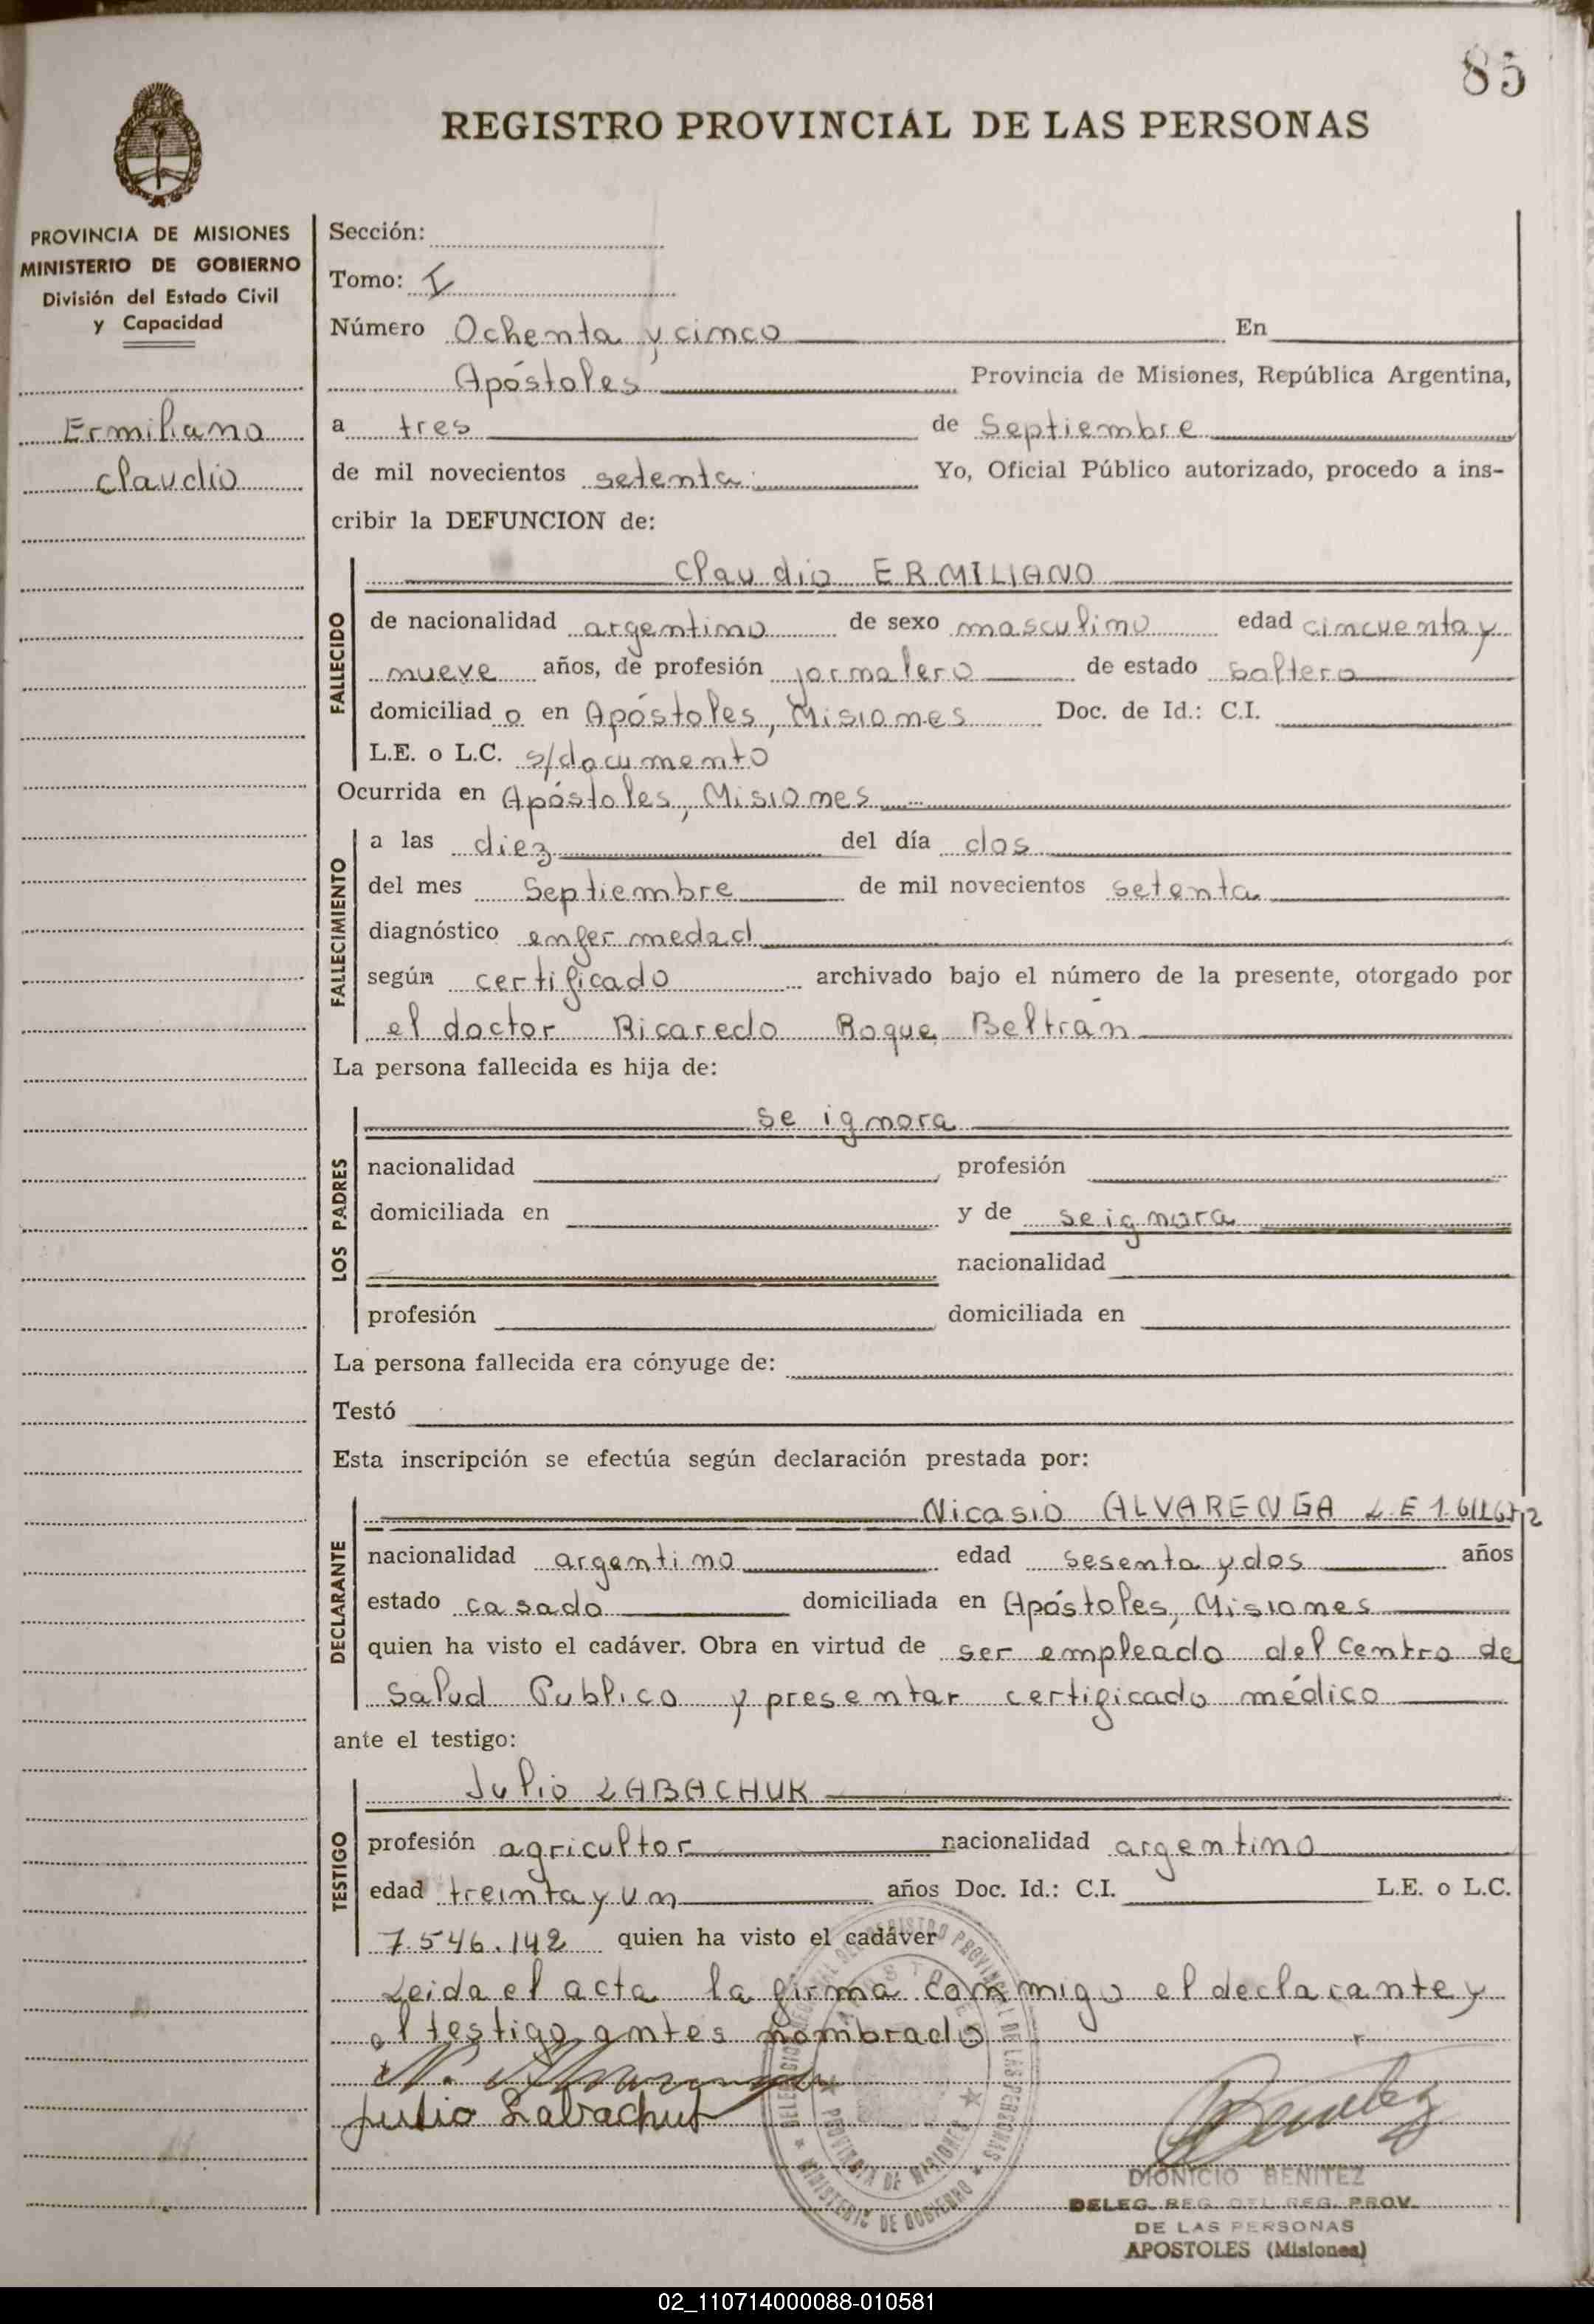 85
REGISTRO PROVINCIAL DE LAS PERSONAS
PROVINCIA DE MISIONES
MINISTERIO DE GOBIERNO
División del Estado Civil
y Capacidad
Ermiliano
Claudio
Sección:
Tomo: I
Número Ochenta y cinco En
Apóstoles Provincia de Misiones, República Argentina,
a tres de Septiembre
de mil novecientos setenta Yo, Oficial Público autorizado, procedo a ins-
cribir la DEFUNCION de:
FALLECIDO
Claudio ERMILIANO
de nacionalidad argentino de sexo masculino edad cincuenta y
nueve años, de profesión jornalero de estado soltero
domiciliad o en Apóstoles, Misiones Doc. de Id.: C.I.
L.E. o L.C. s/documento
Ocurrida en Apóstoles, Misiones
FALLECIMIENTO
a las diez del día dos
del mes Septiembre de mil novecientos setenta
diagnóstico enfermedad
según certificado archivado bajo el número de la presente, otorgado por
el doctor Ricaredo Roque Beltrán
La persona fallecida es hija de:
LOS PADRES
se ignora
nacionalidad profesión
domiciliada en y de se ignora
nacionalidad
profesión domiciliada en
La persona fallecida era cónyuge de:
Testó
Esta inscripción se efectúa según declaración prestada por:
DECLARANTE
Nicasio ALVARENGA L.E
nacionalidad argentino edad sesenta y dos años
estado casado domiciliada en Apóstoles, Misiones
quien ha visto el cadáver. Obra en virtud de ser empleado del Centro de
Salud Publico y presentar certificado médico
ante el testigo:
TESTIGO
Julio LABACHUK
profesión agricultor nacionalidad argentino
edad treinta y un años Doc. Id.: C.I. L.E. o L.C.
7.546.142 quien ha visto el cadáver
Leida el acta la firma conmigo el declarante y
el testigo antes nombrado
Julio Labachuk
Benitez
DIONICIO BENITEZ
DELEG. REG. DEL REG. PROV.
DE LAS PERSONAS
APOSTOLES (Misiones)
PROVINCIA DE MISIONES
MINISTERIO DE GOBIERNO
02_110714000088-010581